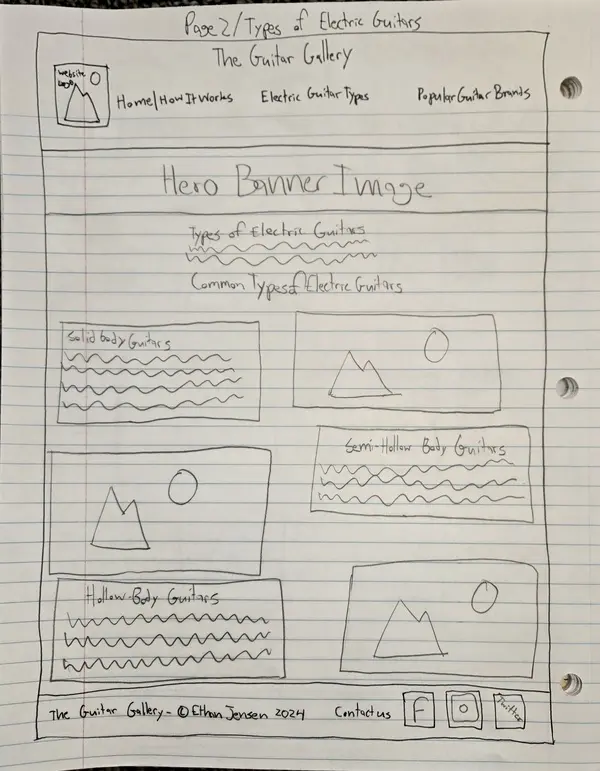 Page 2/Types of Electric Guitars
The Guitar Gallery
website
logo
Home/How It Works Electric Guitar Types Popular Guitar Brands
Hero Banner Image
Types of Electric Guitars
Common Types of Electric Guitars
Solid body Guitars
Semi-Hollow Body Guitars
Hollow-Body Guitars
The Guitar Gallery - © Ethan Jensen 2024 Contact us f Twitter